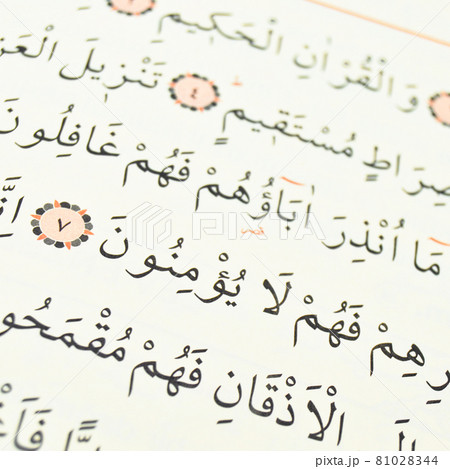 وَالْقُرْاٰنِ الْحَكٖيمِ ٢
صِرَاطٍ مُسْتَقٖيمٍ ٤ تَنْزٖيلَ
مَا اُنْذِرَ اٰبَٓاؤُ۬هُمْ فَهُمْ غَافِلُونَ
فَهُمْ لَا يُؤْمِنُونَ ٧ اِنَّا
الْاَذْقَانِ فَهُمْ مُقْمَحُو
PIXTA
pixta.jp - 81028344